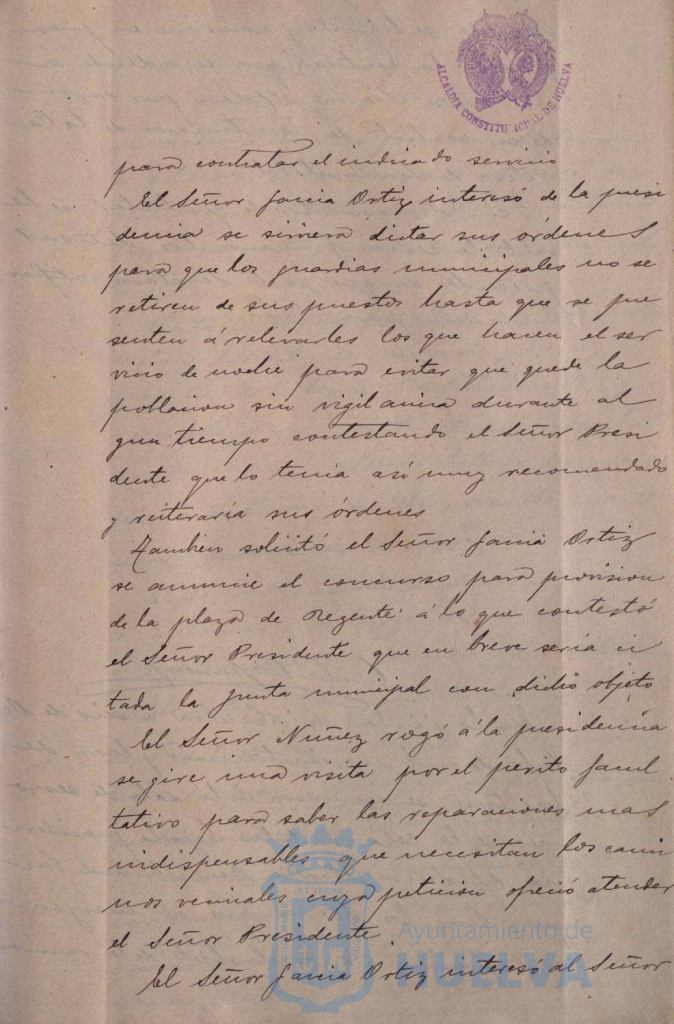 ALCALDIA CONSTITUCIONAL DE HUELVA
para contratar el indicado servicio
El Señor Garcia Ortiz interesó de la presi
dencia se sirviera dictar sus órdenes
para que los guardias municipales no se
retiren de sus puestos hasta que se pre
senten á relevarles los que hacen el ser
vicio de noche para evitar que quede la
poblacion sin vigilancia durante al
gun tiempo contestando el Señor Presi
dente que lo tenia así muy recomendado
y reiteraría sus órdenes
Tambien solicitó el Señor Garcia Ortiz
se anuncie el concurso para provision
de la plaza de Regente á lo que contestó
el Señor Presidente que en breve sería ci
tada la Junta municipal con dicho objeto
El Señor Nuñez rogó á la presidencia
se gire una visita por el perito facul
tativo para saber las reparaciones mas
indispensables que necesitan los cami
nos vecinales cuya peticion ofreció atender
el Señor Presidente.
El Señor Garcia Ortiz interesó al Señor
Ayuntamiento de
HUELVA